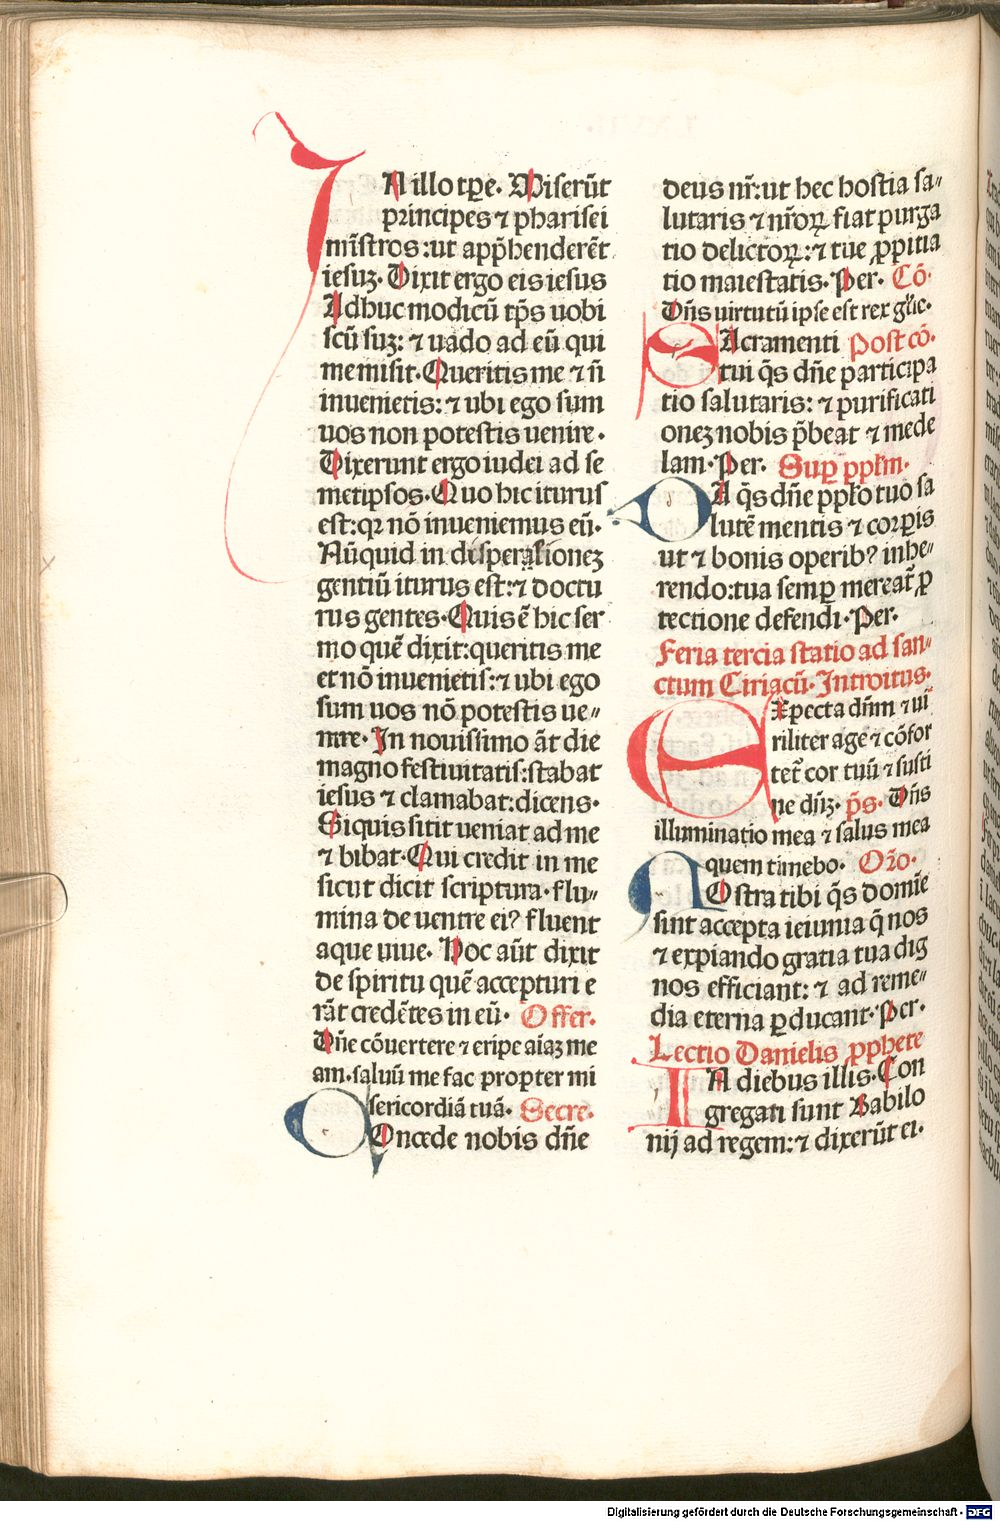 IN illo tp̄e. Miserūt
principes ⁊ pharisei
mīstros: ut app̄henderēt
iesuꝫ. Dixit ergo eis iesus
Adhuc modicū tp̄s uobi
scū suꝫ: ⁊ uado ad eū qui
me misit. Queritis me ⁊ ñ
inuenietis: ⁊ ubi ego sum
uos non potestis uenire.
Dixerunt ergo iudei ad se
metipsos. Quo hic iturus
est: qꝛ nō inueniemus eū.
Nūquid in dispersionez
gentiū iturus est: ⁊ doctu
rus gentes. Quis ē hic ser
mo quē dixit: queritis me
et nō inuenietis: ⁊ ubi ego
sum uos nō potestis ue〃
nire. In nouissimo āt die
magno festiuitatis: stabat
iesus ⁊ clamabat: dicens.
Si quis sitit ueniat ad me
⁊ bibat. Qui credit in me
sicut dicit scriptura. flu〃
mina de uentre eiꝰ fluent
aque uiue. Hoc aūt dixit
de spiritu quē accepturi e
rāt credētes in eū. Offer.
Dn̄e cōuertere ⁊ eripe aīaꝫ me
am. saluū me fac propter mi
sericordiā tuā. Secre.
COncede nobis dn̄e
deus nr̄: ut hec hostia sa〃
lutaris ⁊ nr̄oꝝ fiat purga
tio delictoꝝ: ⁊ tue ꝓpitia
tio maiestatis. Per. Cō.
Dn̄s uirtutū ipse est rex gl̄ie.
SAcramenti Post cō.
tui q̄s dn̄e participa
tio salutaris: ⁊ purificati
onez nobis p̄beat ⁊ mede
lam. Per. Suꝑ ppl̄m.
DA q̄s dn̄e pplō tuo sa
lutē mentis ⁊ corꝑis
ut ⁊ bonis operibꝰ inhe〃
rendo: tua semꝑ mereat̄ ꝓ
tectione defendi. Per.
Feria tercia statio ad san〃
ctum Ciriacū. Introitus.
EXpecta dn̄m ⁊ ui
riliter age ⁊ cōfor
tet̄ cor tuū ⁊ susti
ne dn̄ꝫ. p̄s. Dn̄s
illuminatio mea ⁊ salus mea
quem timebo. Or̄o.
NOstra tibi q̄s domīe
sint accepta ieiunia q̄ nos
⁊ expiando gratia tua dig
nos efficiant: ⁊ ad reme〃
dia eterna ꝑducant. Per.
Lectio Danielis ꝓphete
IN diebus illis. Con
gregati sunt Babilo
nij ad regem: ⁊ dixerūt ei.
Digitalisierung gefördert durch die Deutsche Forschungsgemeinschaft - DFG